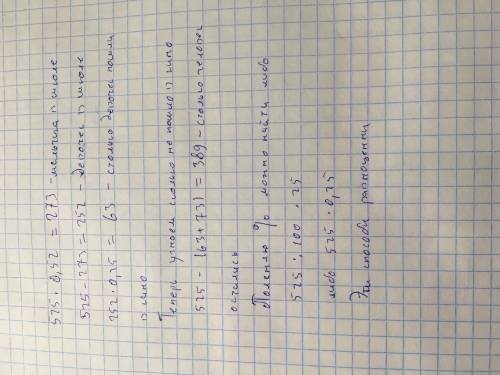 525 · 0,52 = 273 - мальчика в школе
525 - 273 = 252 - девочек в школе
252 · 0,25 = 63 - столько девочек пошли
в кино
Теперь узнаем сколько не пошло в кино
525 - (63+73) = 389 - столько человек
остались
Поясняю % можно найти либо
525 : 100 · 25
либо 525 · 0,25
Эти способы равноценны